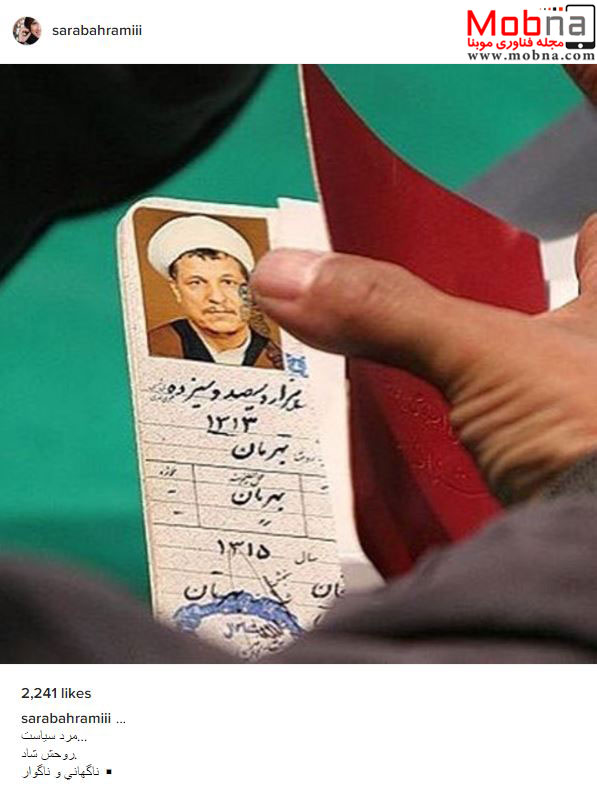 sarabahramiii
Mobna
مجله فناوری موبنا
www.mobna.com
هزار و سیصد و سیزده
۱۳۱۳
بهرمان
بهرمان
۱۳۱۵
سال
بهرمان
2,241 likes
sarabahramiii ...
مرد سیاست...
روحش شاد.
ناگهاني و ناگوار ▪